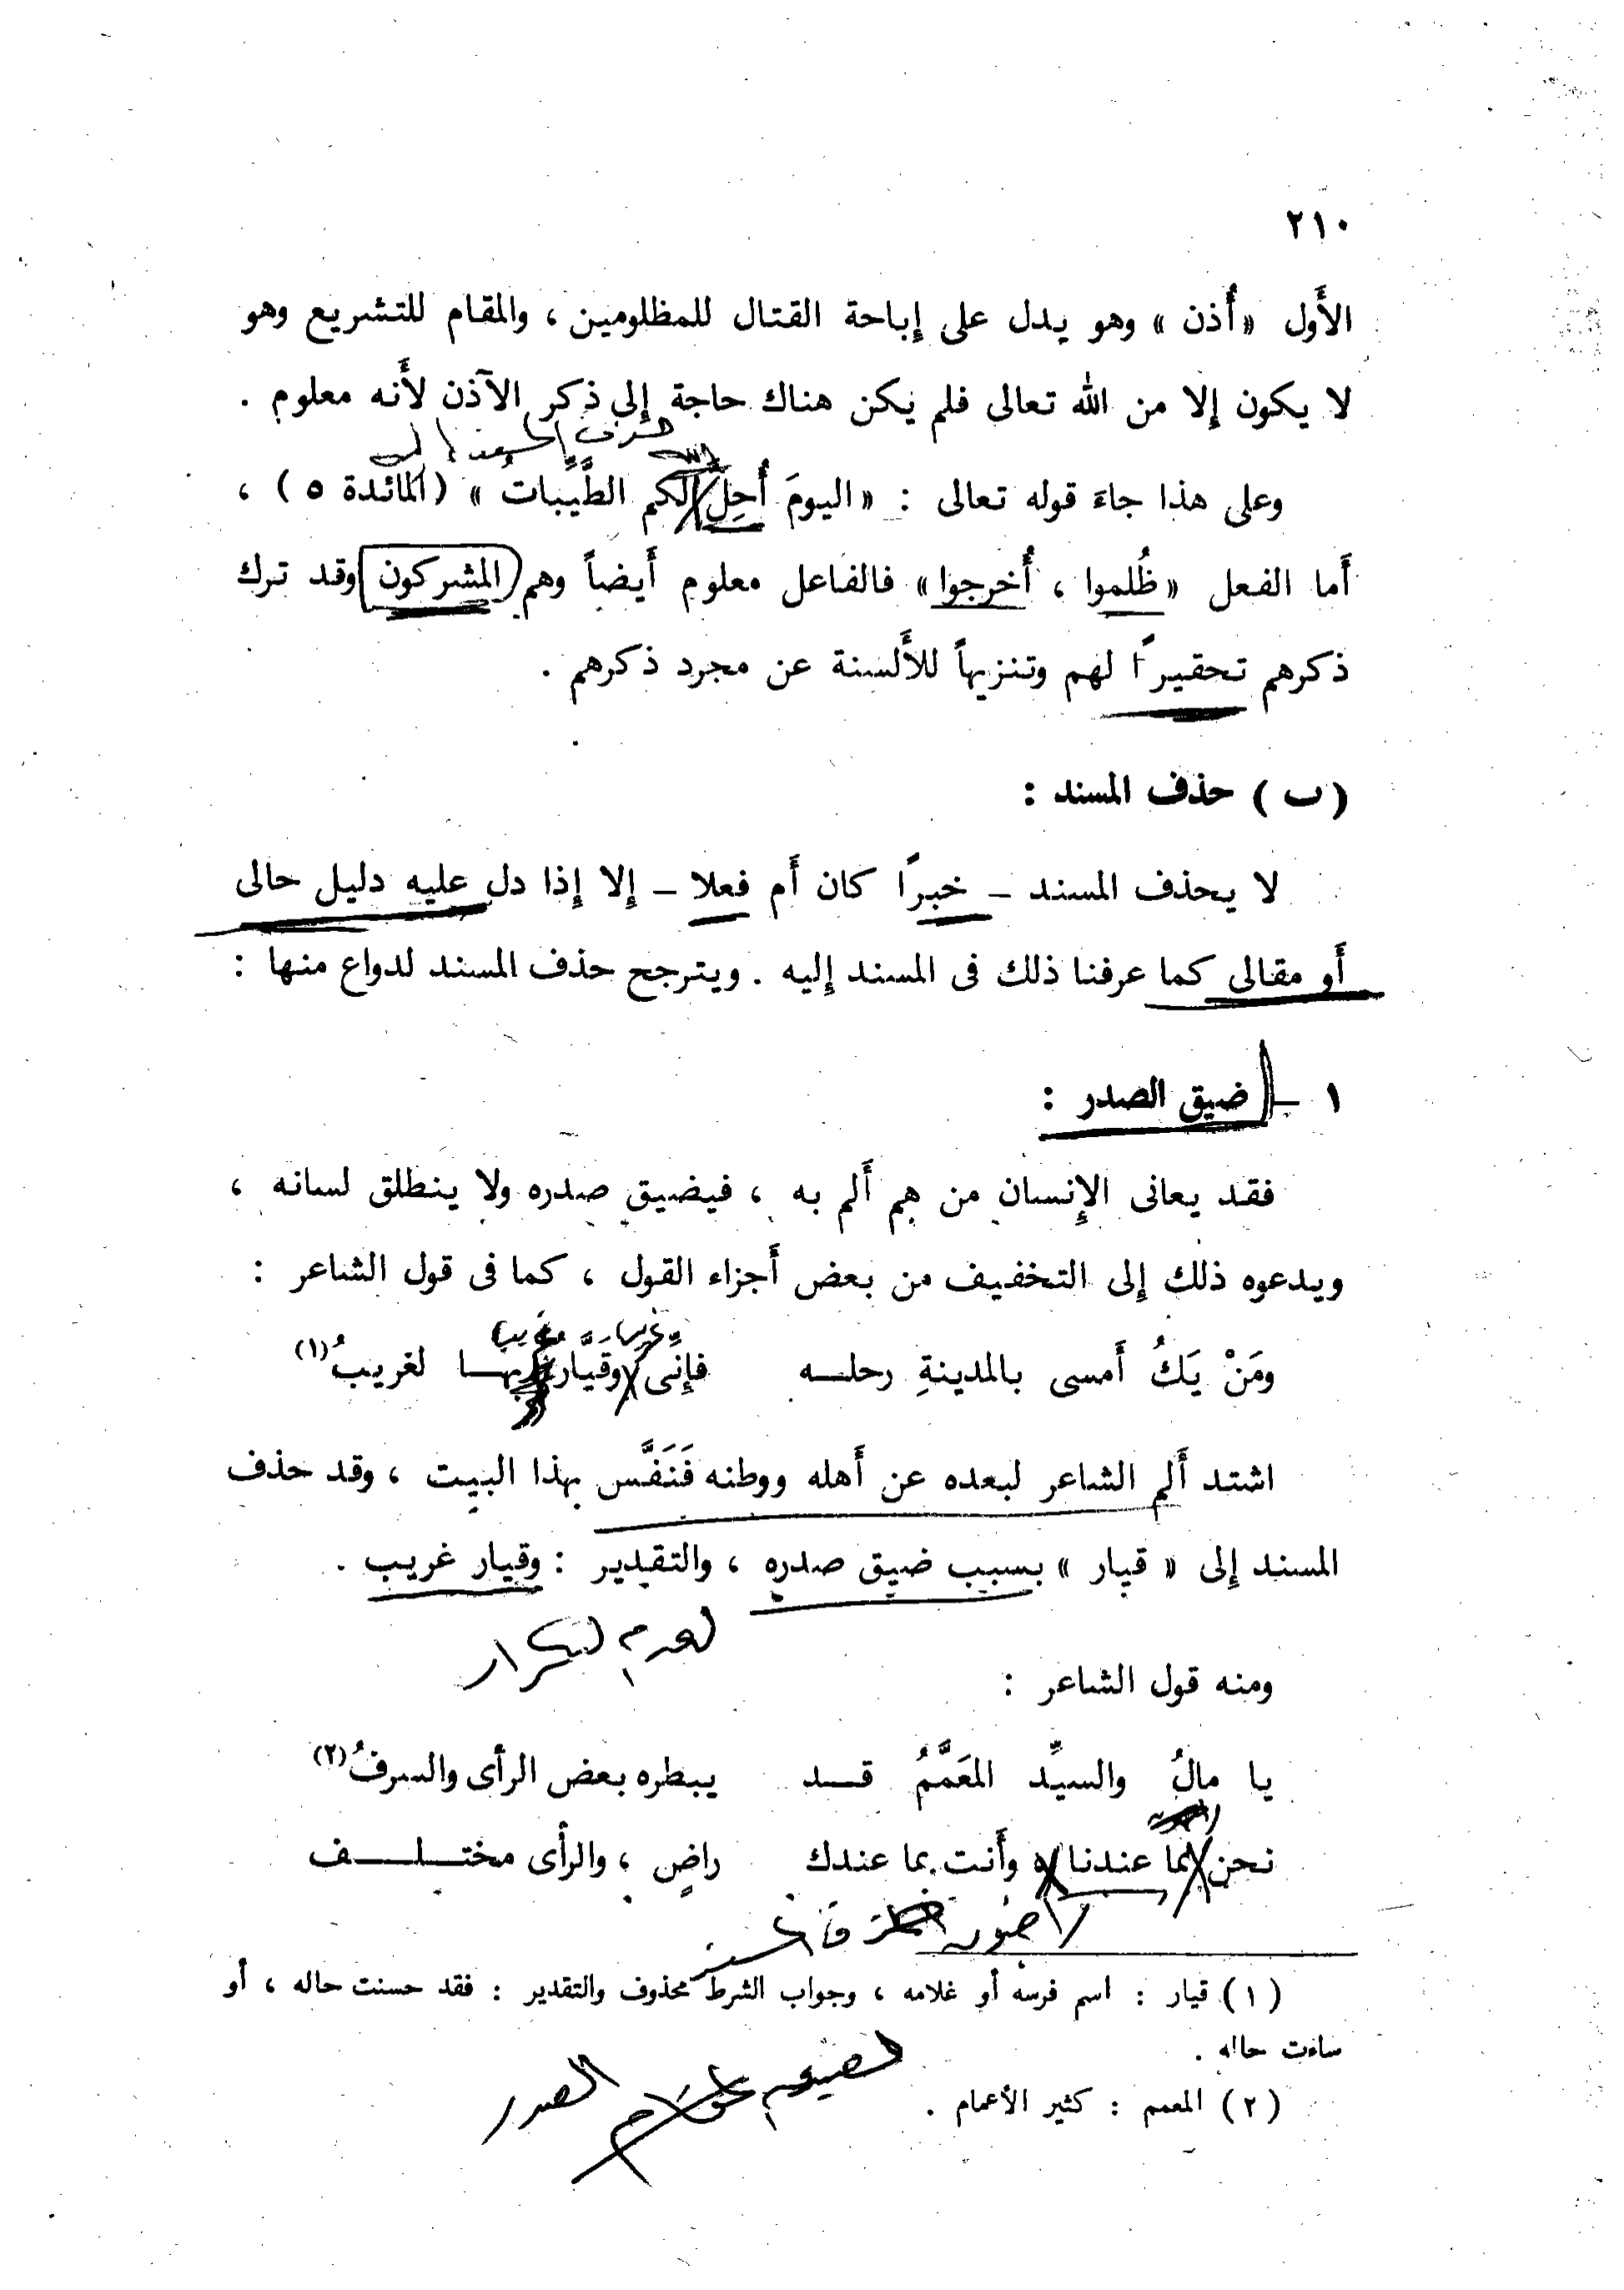 ٢١٠
الأَول «أُذن» وهو يدل على إباحة القتال للمظلومين ، والمقام للتشريع وهو
لا يكون إلا من الله تعالى فلم يكن هناك حاجة إلى ذكر الآذن لأَنه معلوم .
حذف المسند إليه
الله
وعلى هذا جاءَ قوله تعالى : «اليومَ أُحِلَّ لكم الطَّيِّباتُ» (المائدة ٥) ،
أَما الفعل «ظُلموا ، أُخرجوا» فالفاعل معلوم أَيضاً وهم المشركون وقد ترك
ذكرهم تحقيرًا لهم وتنزيهاً للأَلسنة عن مجرد ذكرهم .
(ب) حذف المسند :
لا يحذف المسند – خبرًا كان أَم فعلا – إلا إذا دل عليه دليل حالى
أَو مقالى كما عرفنا ذلك فى المسند إليه . ويترجح حذف المسند لدواع منها :
١ – ضيق الصدر :
فقد يعانى الإنسان من هم أَلم به ، فيضيق صدره ولا ينطلق لسانه ،
ويدعوه ذلك إلى التخفيف من بعض أَجزاء القول ، كما فى قول الشاعر :
غريب
ومَنْ يَكُ أَمسى بالمدينةِ رحلــه فإنِّى وقَيَّارٌ بهــا لغريبُ (١)
اشتد أَلم الشاعر لبعده عن أَهله ووطنه فَنَفَّس بهذا البيت ، وقد حذف
المسند إلى « قيار » بسبب ضيق صدره ، والتقدير : وقيار غريب .
لعدم التكرار
ومنه قول الشاعر :
يا مالُ والسيِّد المعَمَّمُ قــد يبطره بعض الرأى والسرفُ (٢)
نحن بما عندنا وأَنت بما عندك راضٍ ، والرأى مختـلـــف
(١) قيار : اسم فرسه أو غلامه ، وجواب الشرط محذوف والتقدير : فقد حسنت حاله ، أو
ساءت حاله .
(٢) المعمم : كثير الأعمام .
الصدر